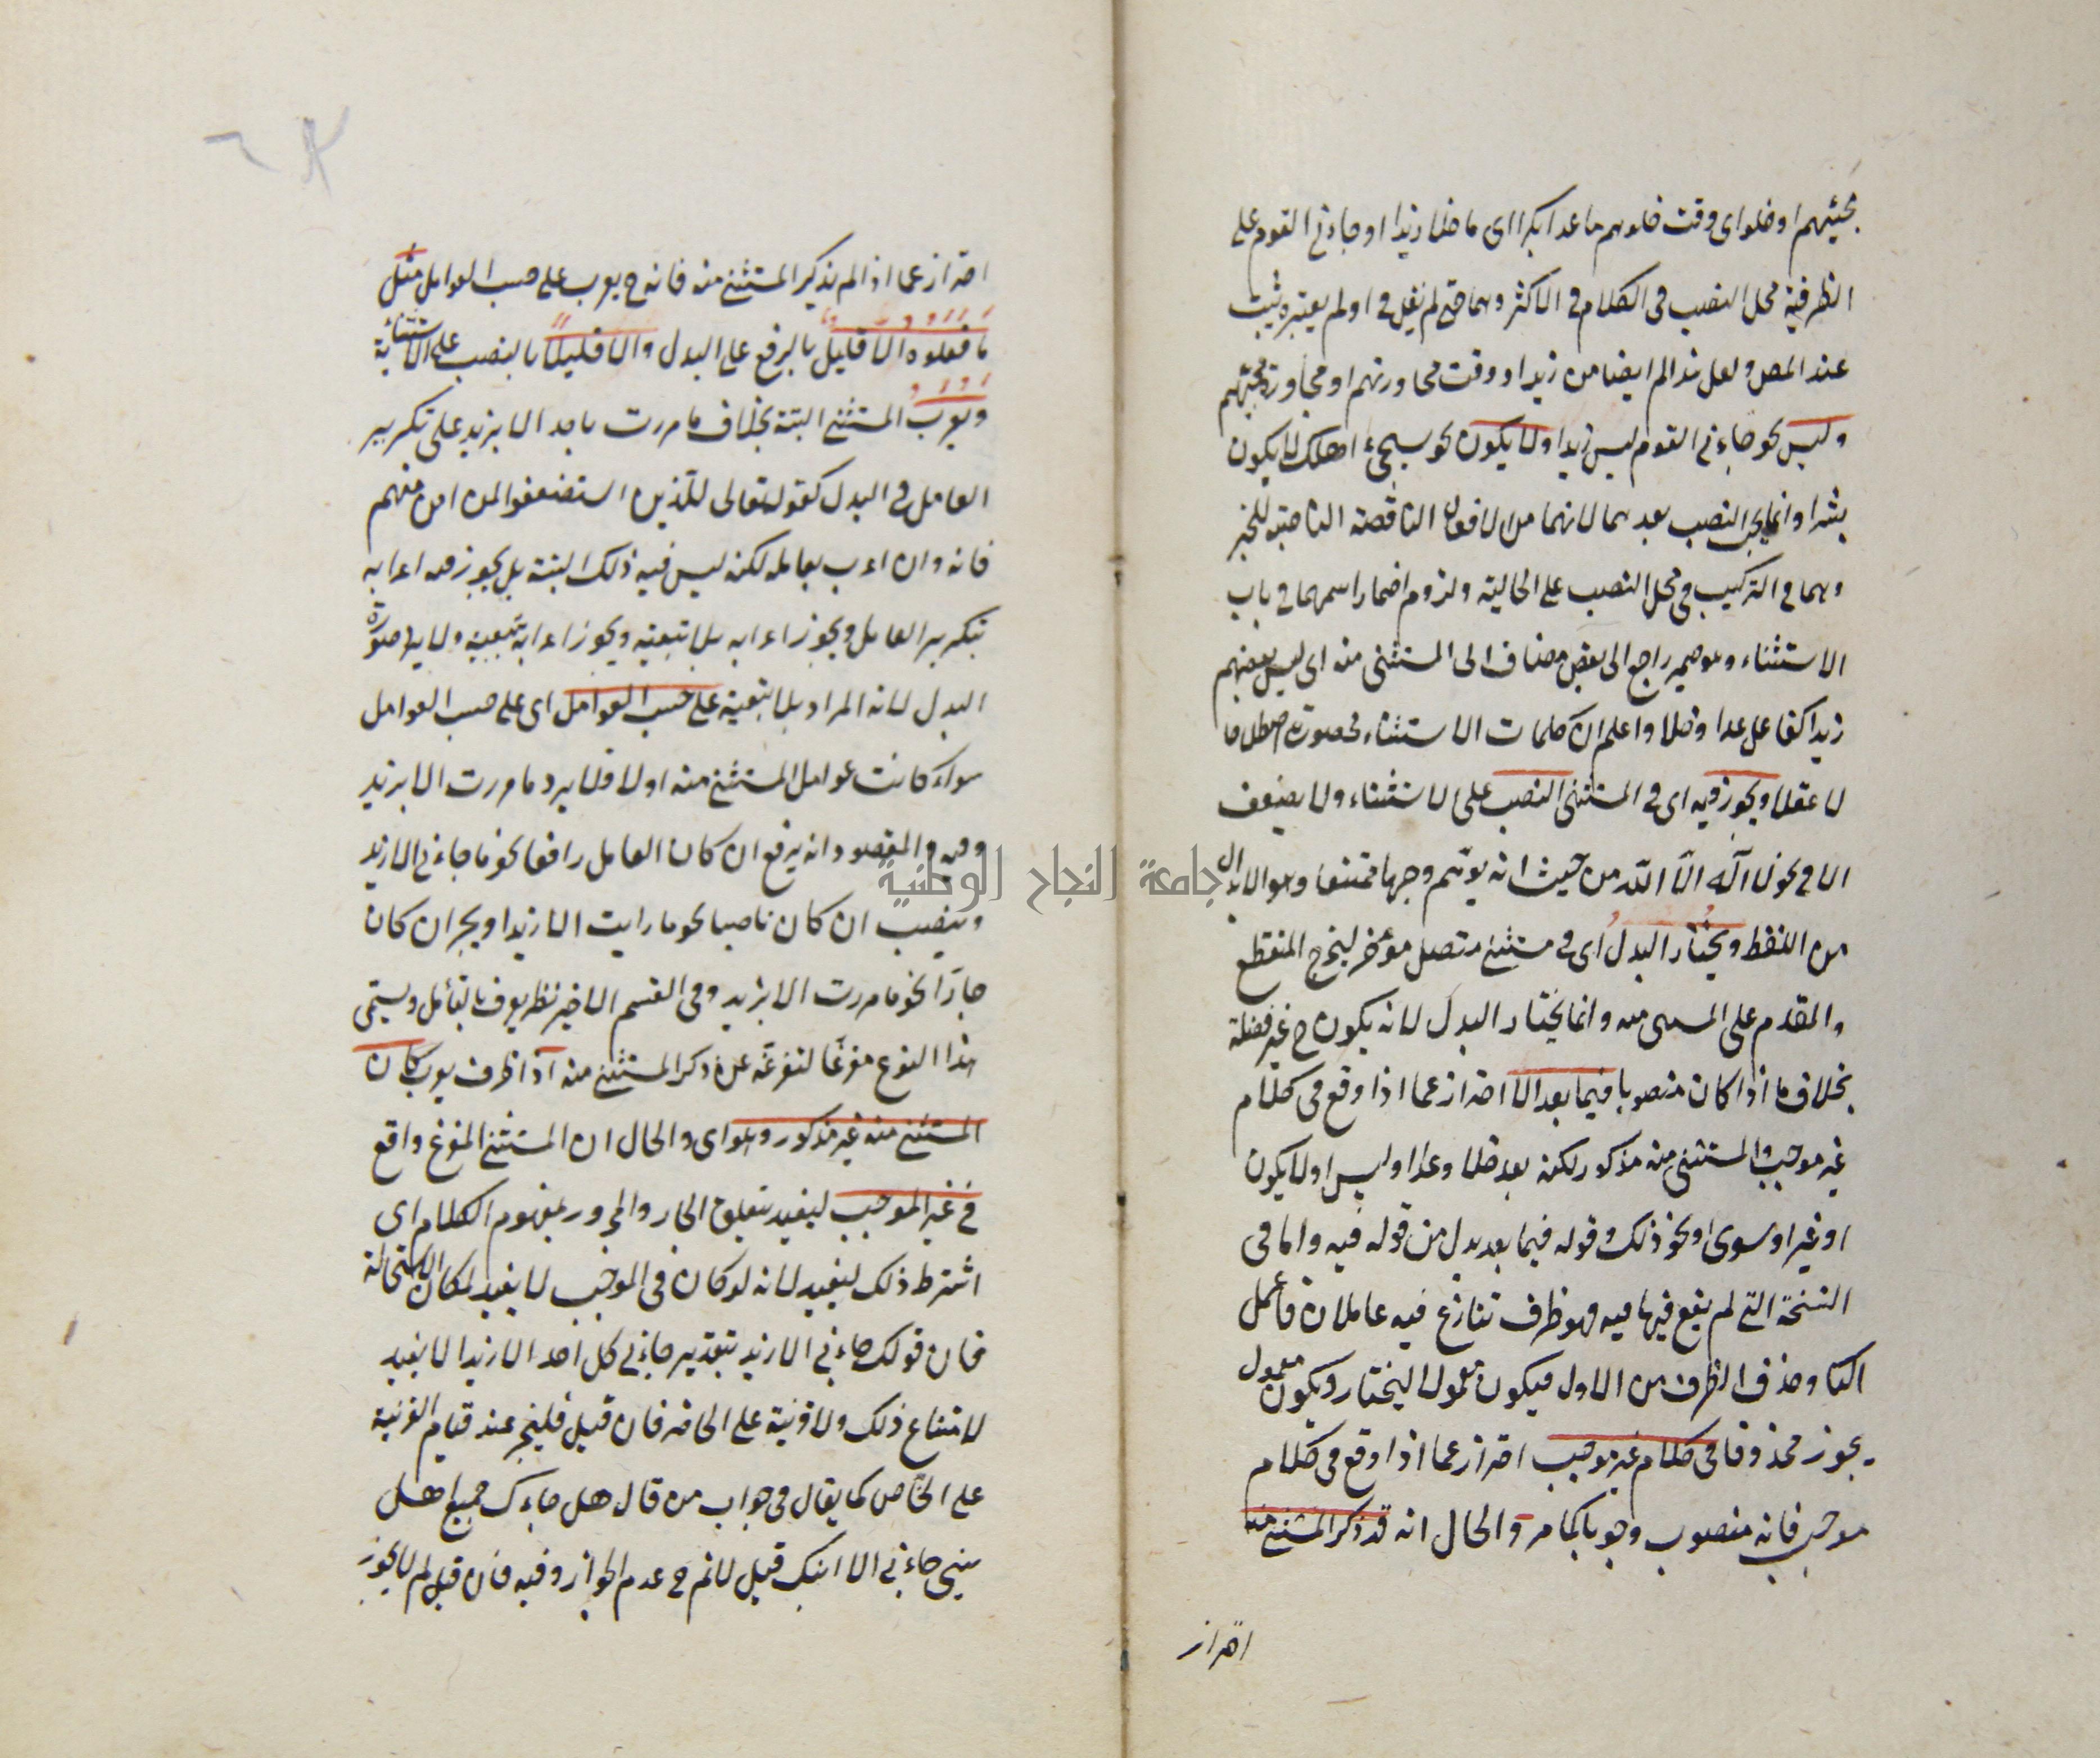 مجيئهم او خلوا اى وقت خلوهم ما عدا بكرا اى ما خلا زيدا او جاءنى القوم على
الظرفية محل النصب فى الكلام فى الاكثر وهما حتى لم يقل فى او لم يعتبره ثبت
عند المص ولعل ند الم ايضا من زيدا ووقت مجاورتهم او مجاوزة مجيئهم
وليس نحو جاءنى القوم ليس زيدا ولا يكون نحو سيجىء اهلك لا يكون
بشرا وانما يجب النصب بعدهما لانهما من الافعال الناقصة الناصبة للخبر
وهما فى التركيب فى محل النصب على الحالية ولزوم اضمار اسمهما فى باب
الاستثناء وهو ضمير راجع الى بعض مضاف الى المستثنى منه اى ليس بعضهم
زيدا كفاعل عدا وخلا واعلم ان كلمات الاستثناء
لا عقلا ويجوز فيه اى فى المستثنى النصب على الاستثناء ولا يضعف
الا فى نحو لا اله الا الله من حيث انه يوهم وجها ممتنعا وهو الابدال
من اللفظ ويختار البدل اى فى مستثنى متصل مؤخر ليخرج المنقطع
والمقدم على المستثنى منه وانما يختار البدل لانه يكون ح غير فضلة
بخلاف ما اذا كان منصوبا فيما بعد الا احتراز عما اذا وقع فى كلام
غير موجب والمستثنى منه مذكور لكنه بعد خلا وعدا وليس ولا يكون
او غير او سوى او نحو ذلك وقوله فيما بعد بدل من قوله فيه واما فى
النسخة التى لم يقع فيها فيه فهو ظرف تنازع فيه عاملان فاعمل
الثا وحذف الظرف من الاول فيكون معمولا ليختار ويكون معمول
يجوز محذوفا فى كلام غير موجب احتراز عما اذا وقع فى كلام
موجب فانه منصوب وجوبا كما مر والحال انه قد ذكر المستثنى منه
احتراز
احتراز عما اذا لم يذكر المستثنى منه فانه ح يعرب على حسب العوامل مثل
ما فعلوه الا قليل بالرفع على البدل والا قليلا بالنصب على الاستثنائية
ويعرب المستثنى البتة بخلاف ما مررت باحد الا بزيد على تكرير
العامل فى البدل كقوله تعالى للذين استضعفوا لمن امن منهم
فانه وان اعرب بعامله لكنه ليس فيه ذلك البتة بل يجوز فيه اعرابه
بتكرير العامل ويجوز اعرابه بلا تبعية ويجوز اعرابه بتبعية ولا يرد صورة
البدل لانه المراد بلا تبعية على حسب العوامل اى على حسب العوامل
سواء كانت عوامل المستثنى منه او لا فلا يرد ما مررت الا بزيد
وفيه والمقصود انه يرفع ان كان العامل رافعا نحو ما جاءنى الا زيد
وينصب ان كان ناصبا نحو ما رايت الا زيدا ويجر ان كان
جارا نحو ما مررت الا بزيد وفى القسم الاخير نظر يعرف بالتأمل ويسمى
هذا النوع مفرغا لتفرغه عن ذكر المستثنى منه اذا ظرف يعرب كان
المستثنى منه غير مذكور وهو اى والحال ان المستثنى المفرغ واقع
فى غير الموجب ليفيد تتعلق الجار والمجرور بمفهوم الكلام اى
اشترط ذلك ليفيد لانه لو كان فى الموجب لا يفيد لمكان الاستحالة
فان قولك جاءنى الا زيد بتقدير جاءنى كل احد الا زيدا لا يفيد
لامتناع ذلك ولا قرينة على الخاص فان قيل فليجز عند قيام القرينة
على الخاص كما يقال فى جواب من قال هل جاءك جميع اهل
بيتى جاءنى الا ابنك قيل لانم ح عدم الجواز وفيه فان قيل لم لا يجوز
جامعة النجاح الوطنية